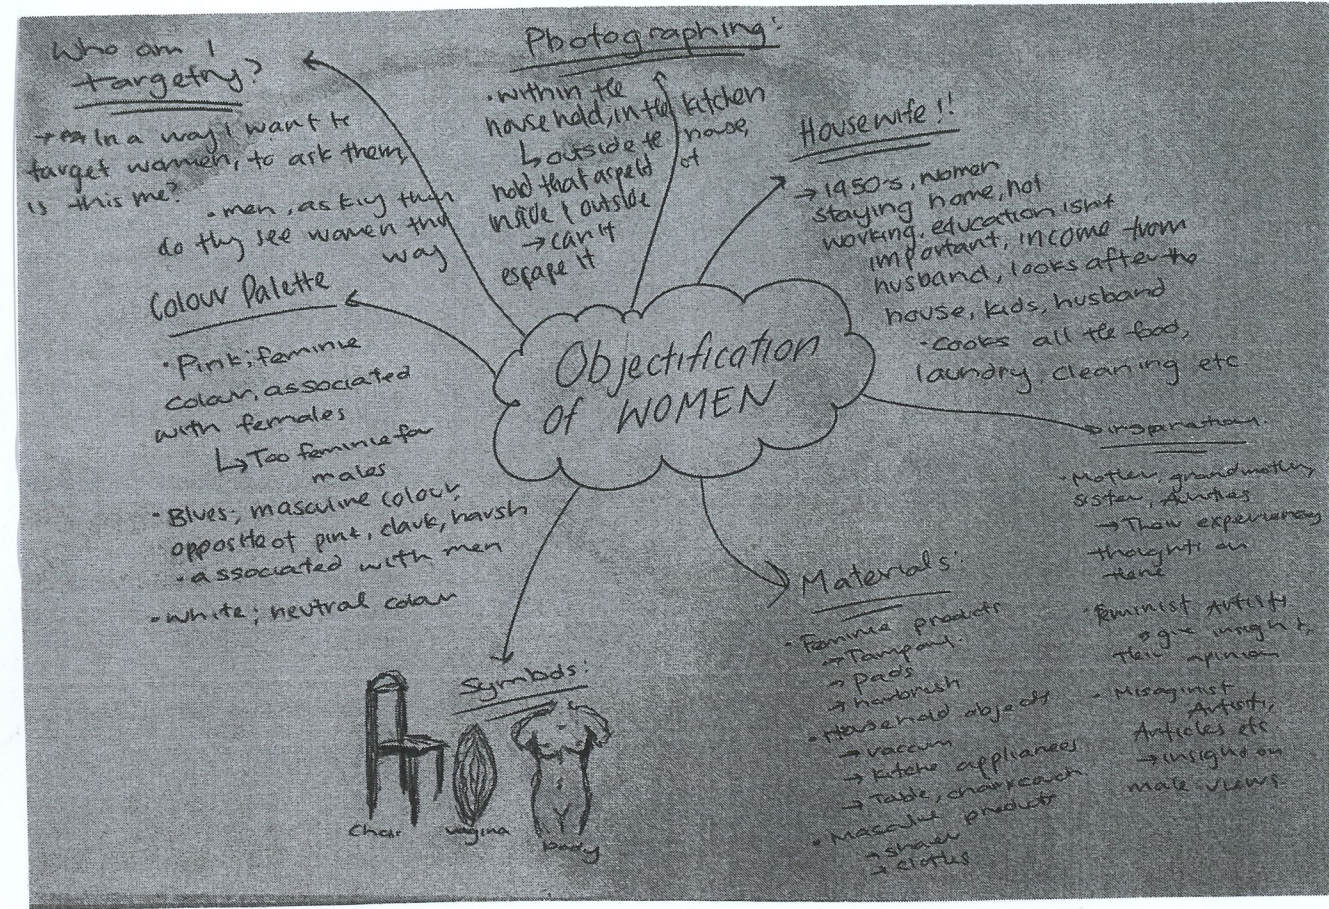 Who am I
targeting?
→ In a way I want to
target women, to ask them,
is this me?
• men, asking them
do they see women this
way
Photographing:
• within the
household, in the kitchen
↳ outside the house,
hold that aspect of
inside / outside
→ can't
escape it
Housewife!!
→ 1950's, women
staying home, not
working. education isn't
important, income from
husband, looks after the
house, kids, husband
• cooks all the food,
laundry, cleaning etc
Colour Palette
• Pink; feminie
colour, associated
with females
↳ Too feminie for
males
• Blues; masculine colour,
opposite of pink, dark, harsh
• associated with men
• White; neutral colour
Objectification
of WOMEN
Inspiration:
• Mother, grandmother,
sister, Aunties
→ Their experiences,
thoughts on
theme
• Feminist Artists
→ give insight,
their opinion
• Misoginist
Artists,
Articles etc
→ insight on
male views
Materials:
• Feminie products
→ Tampon
→ pads
→ hairbrush
• Household objects
→ vaccum
→ kitche appliances
→ Table, chair, couch
• Masculine products
→ shaver
→ cloths
Symbols:
Chair
vagina
body